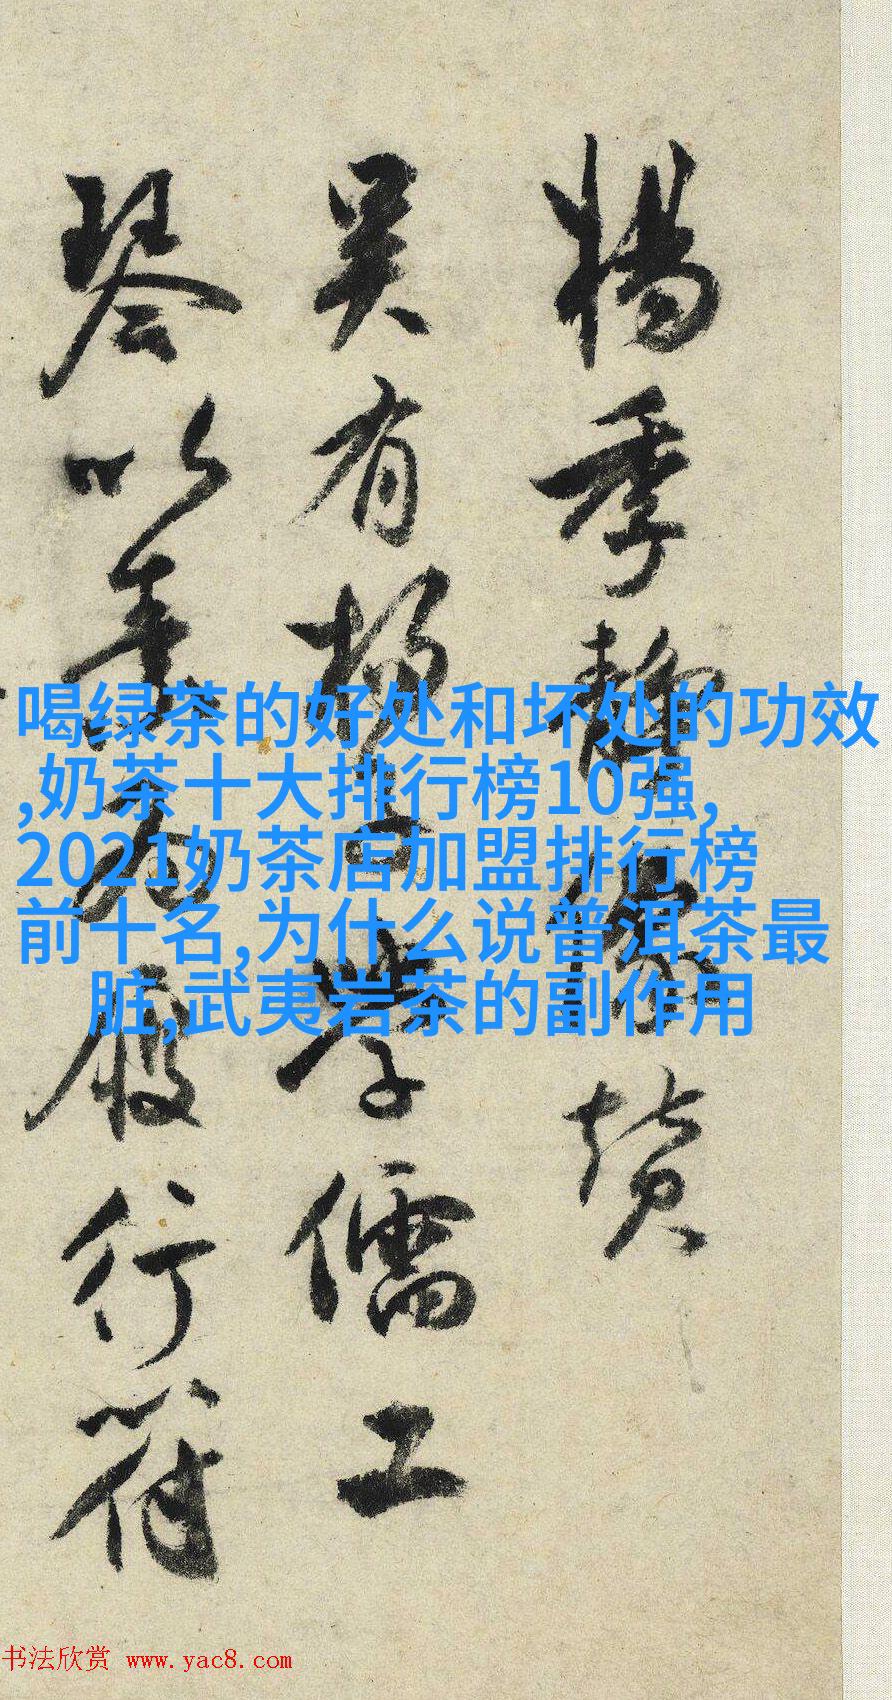 楊季靜像赞
吴有楊學儒工
琴以為履行符
喝绿茶的好处和坏处的功效
,奶茶十大排行榜10强,
2021奶茶店加盟排行榜
前十名,为什么说普洱茶最
脏,武夷岩茶的副作用
书法欣赏 www.yac8.com